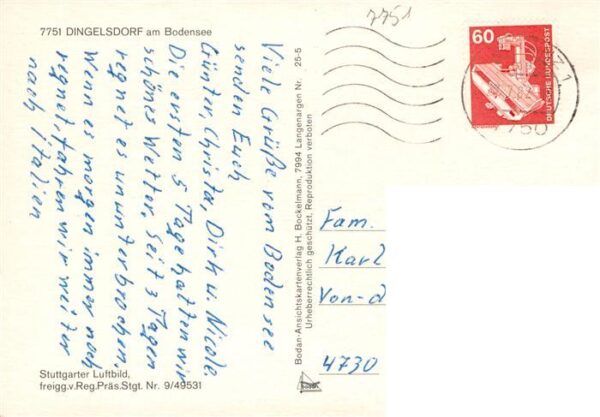 7751 DINGELSDORF am Bodensee
Viele Grüße vom Bodensee
senden Euch
Günter, Christa, Dirk u. Nicole
Die ersten 5 Tage hatten wir
schönes Wetter. Seit 3 Tagen
regnet es ununterbrochen.
Wenn es morgen immer noch
regnet, fahren wir weiter
nach Italien
Stuttgarter Luftbild,
freigg.v.Reg.Präs.Stgt. Nr. 9/49531
Bodan-Ansichtskartenverlag H. Bockelmann, 7994 Langenargen Nr. 25-5
Urheberrechtlich geschützt, Reproduktion verboten
7751
60
DEUTSCHE BUNDESPOST
7750
Fam.
Karl
Von-d
4730